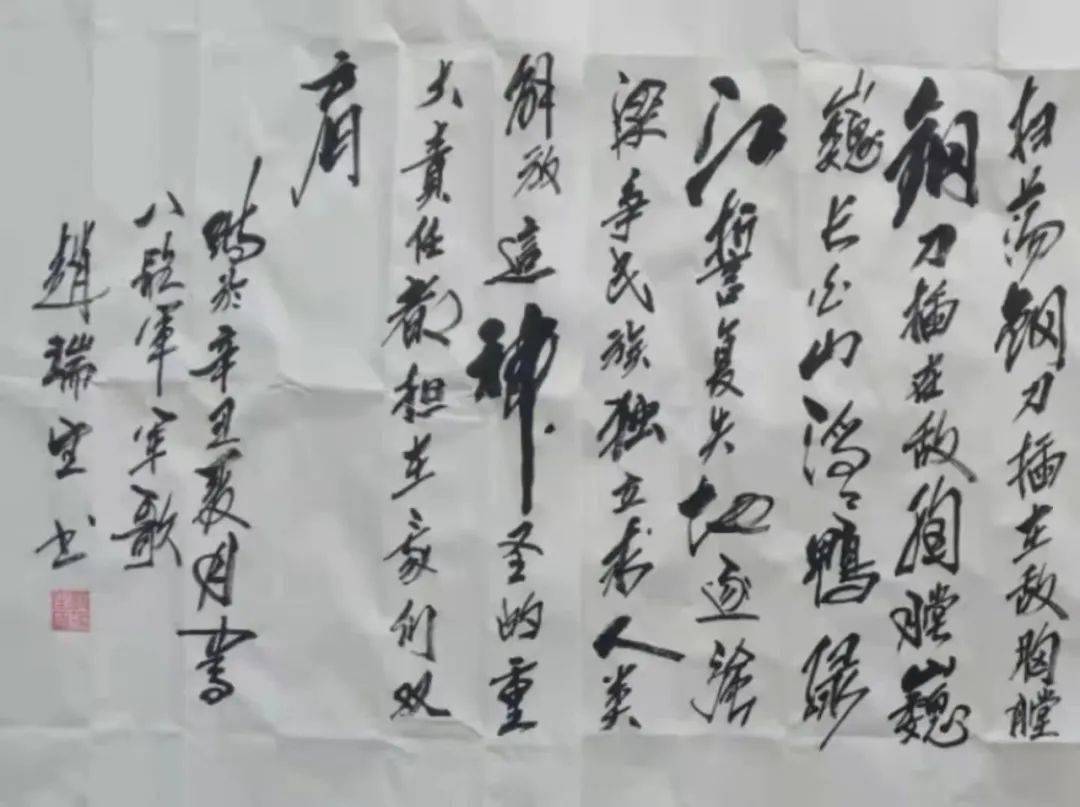 扫荡钢刀插在敌胸膛
钢刀插在敌胸膛巍
巍长白山滔滔鸭绿
江誓复失地逐强
梁争民族独立求人类
解放這神圣的重
大責任都担在我们双
肩
時於辛丑夏月書
八路軍軍歌
趙瑞宝书